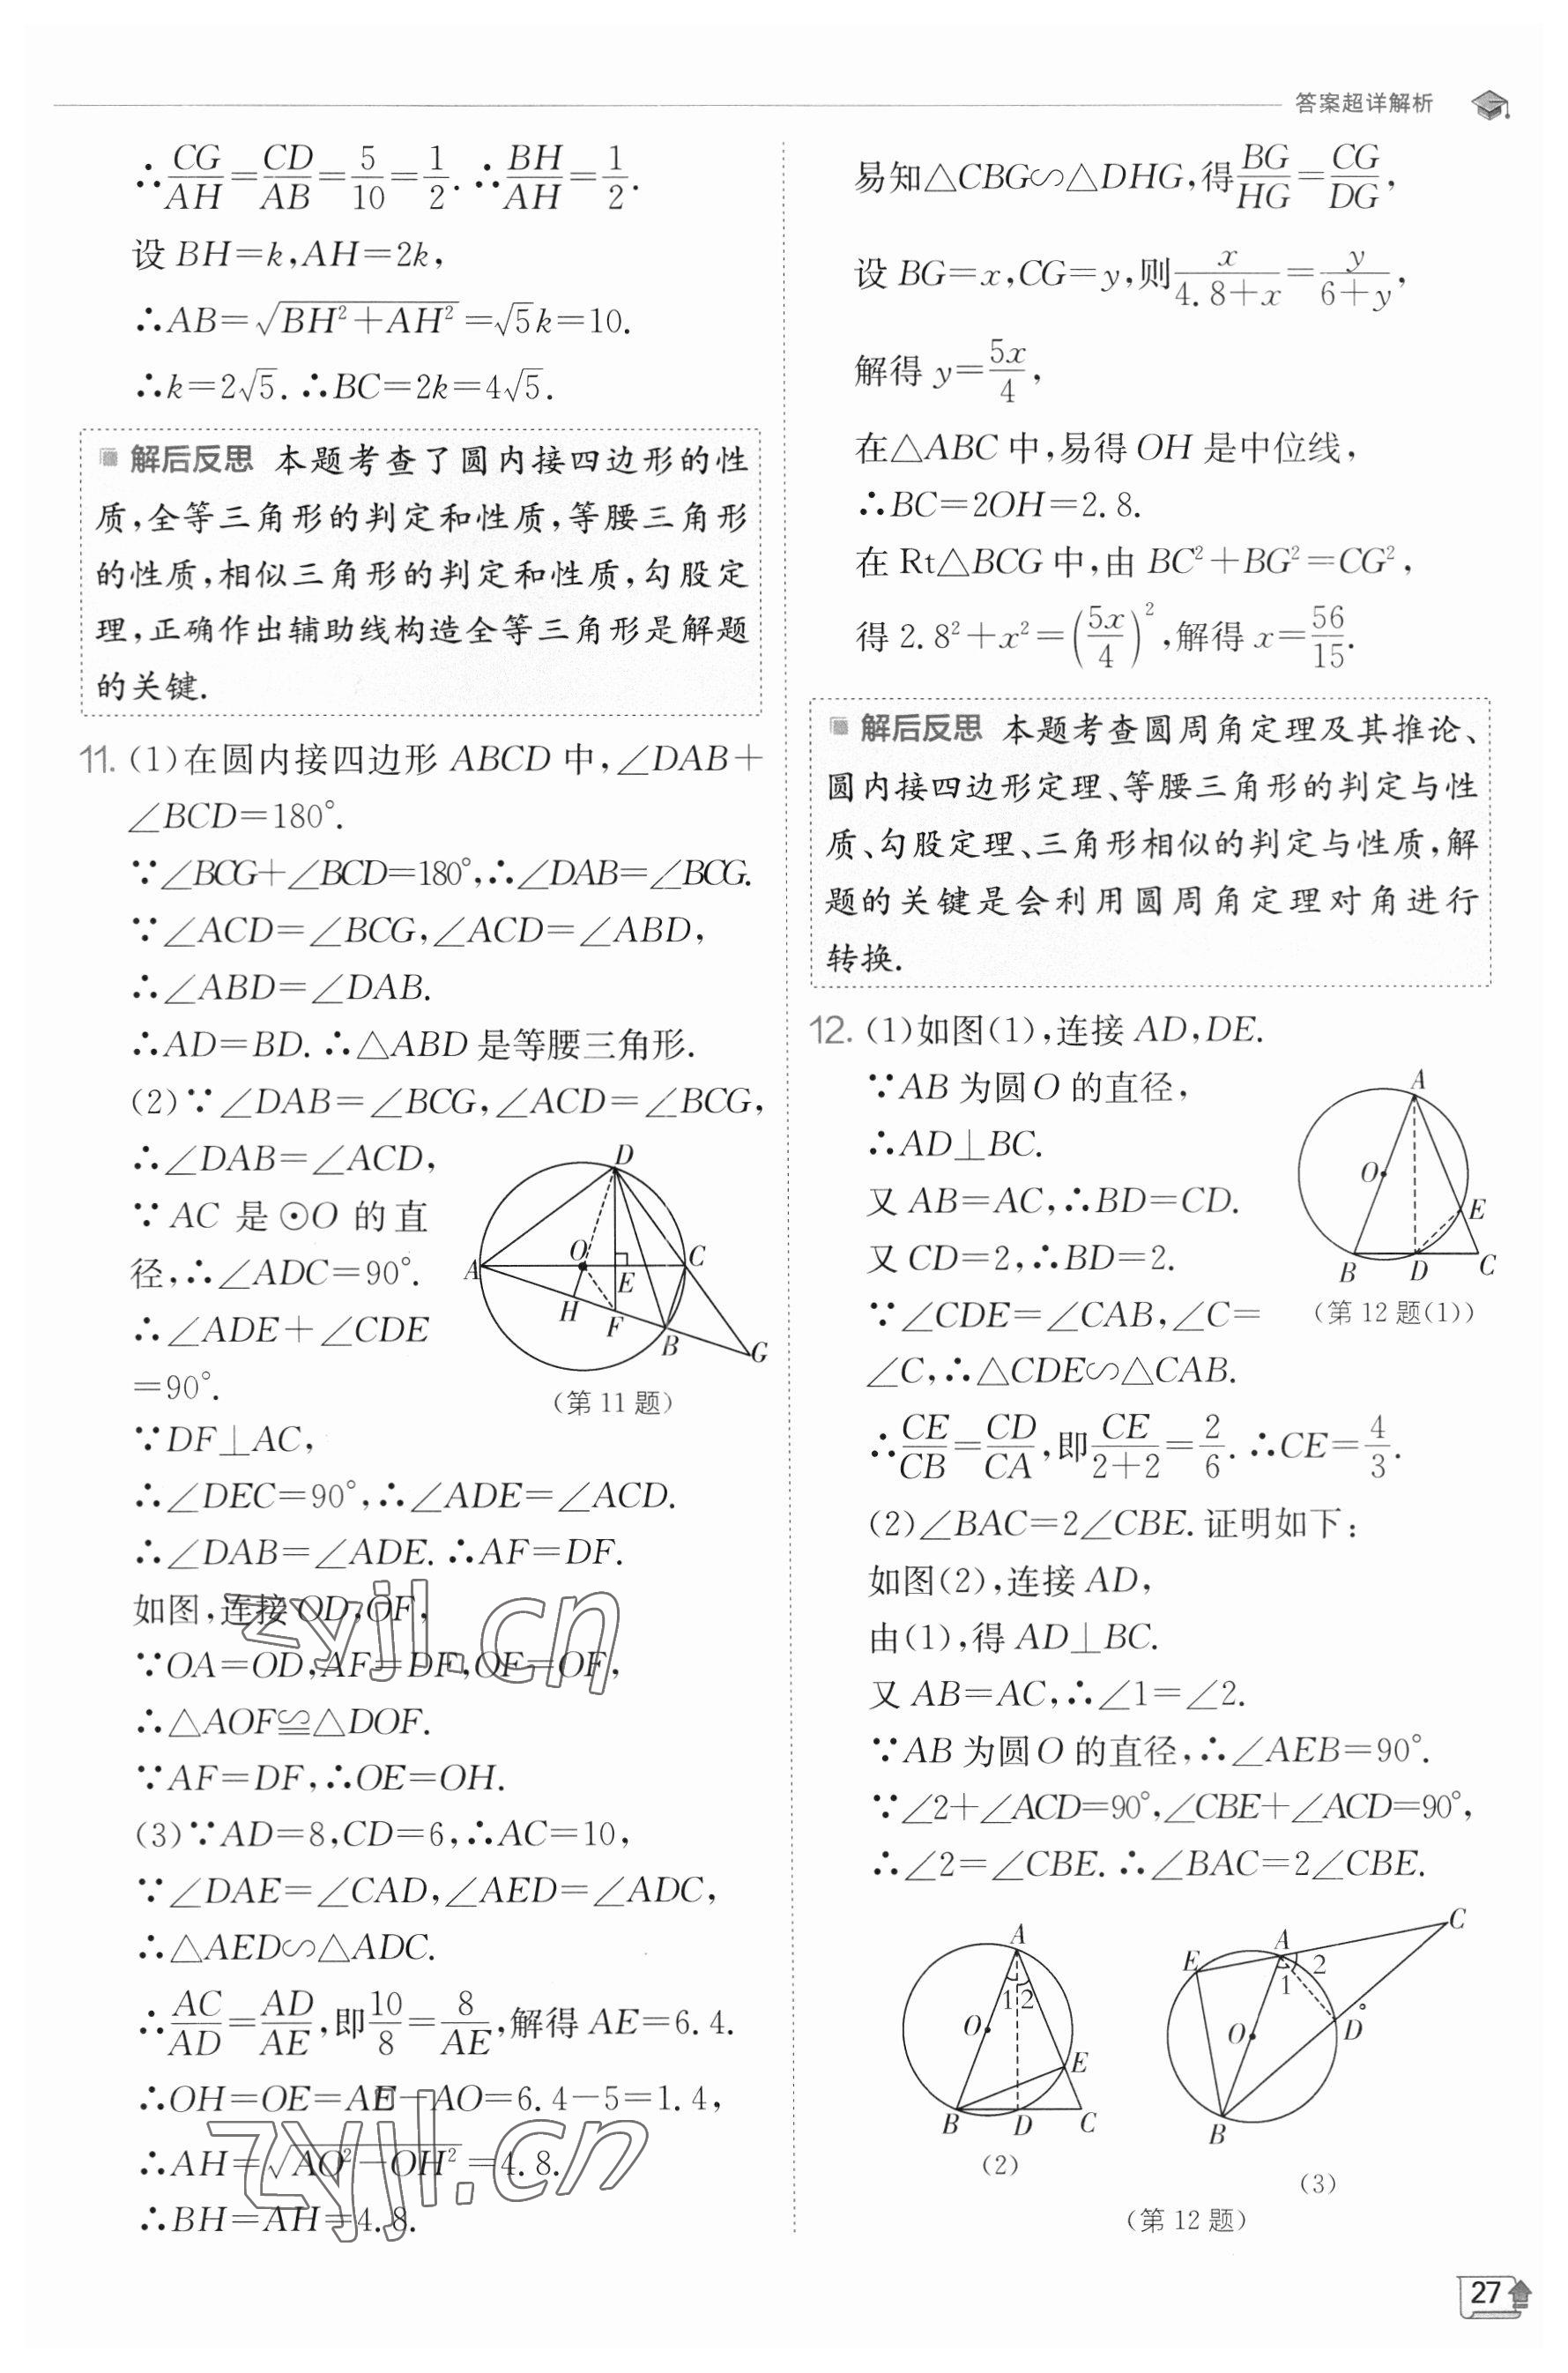 答案超详解析
∴CG/AH=CD/AB=5/10=1/2.∴BH/AH=1/2.
设 BH=k,AH=2k,
∴AB=√(BH²+AH²)=√5k=10.
∴k=2√5.∴BC=2k=4√5.
解后反思 本题考查了圆内接四边形的性
质,全等三角形的判定和性质,等腰三角形
的性质,相似三角形的判定和性质,勾股定
理,正确作出辅助线构造全等三角形是解题
的关键.
11. (1)在圆内接四边形 ABCD 中,∠DAB+
∠BCD=180°.
∵∠BCG+∠BCD=180°,∴∠DAB=∠BCG.
∵∠ACD=∠BCG,∠ACD=∠ABD,
∴∠ABD=∠DAB.
∴AD=BD.∴△ABD 是等腰三角形.
(2)∵∠DAB=∠BCG,∠ACD=∠BCG,
∴∠DAB=∠ACD,
∵AC 是⊙O 的直
径,∴∠ADC=90°.
∴∠ADE+∠CDE
=90°.
D
O
C
A
E
H
F
B
G
(第 11 题)
∵DF⊥AC,
∴∠DEC=90°,∴∠ADE=∠ACD.
∴∠DAB=∠ADE.∴AF=DF.
如图,连接 OD,OF,
∵OA=OD,AF=DF,OF=OF,
∴△AOF≌△DOF.
∵AF=DF,∴OE=OH.
(3)∵AD=8,CD=6,∴AC=10,
∵∠DAE=∠CAD,∠AED=∠ADC,
∴△AED∽△ADC.
∴AC/AD=AD/AE,即10/8=8/AE,解得 AE=6.4.
∴OH=OE=AE-AO=6.4-5=1.4,
∴AH=√(AO²-OH²)=4.8.
∴BH=AH=4.8.
zyjl.cn
zyjl.cn
易知△CBG∽△DHG,得BG/HG=CG/DG,
设 BG=x,CG=y,则x/(4.8+x)=y/(6+y),
解得 y=5x/4,
在△ABC 中,易得 OH 是中位线,
∴BC=2OH=2.8.
在 Rt△BCG 中,由 BC²+BG²=CG²,
得 2.8²+x²=(5x/4)²,解得 x=56/15.
解后反思 本题考查圆周角定理及其推论、
圆内接四边形定理、等腰三角形的判定与性
质、勾股定理、三角形相似的判定与性质,解
题的关键是会利用圆周角定理对角进行
转换.
12. (1)如图(1),连接 AD,DE.
∵AB 为圆 O 的直径,
∴AD⊥BC.
又 AB=AC,∴BD=CD.
又 CD=2,∴BD=2.
∵∠CDE=∠CAB,∠C=
∠C,∴△CDE∽△CAB.
A
O
E
B
D
C
(第 12 题(1))
∴CE/CB=CD/CA,即CE/(2+2)=2/6.∴CE=4/3.
(2)∠BAC=2∠CBE.证明如下:
如图(2),连接 AD,
由(1),得 AD⊥BC.
又 AB=AC,∴∠1=∠2.
∵AB 为圆 O 的直径,∴∠AEB=90°.
∵∠2+∠ACD=90°,∠CBE+∠ACD=90°,
∴∠2=∠CBE.∴∠BAC=2∠CBE.
A
1 2
O
E
B
D
C
(2)
C
A
E
2
1
O
D
B
(3)
(第 12 题)
27